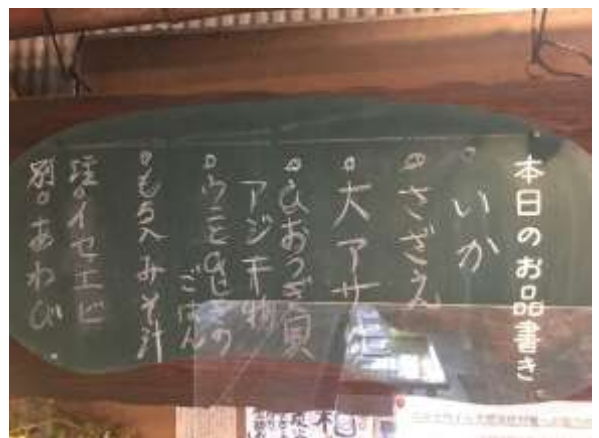 本日のお品書き
いか
さざえ
大アサリ
ひおうぎ貝
アジ干物
ウニとひじきの
ごはん
みそ汁
イセエビ
別のあわび